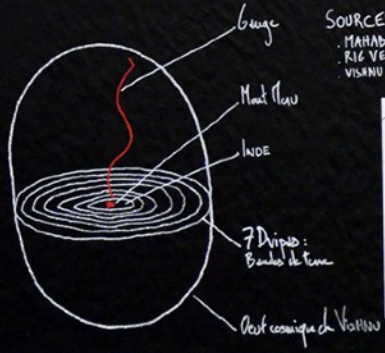 Gange
SOURCE
. MAHAB
. RIG VE
. VISHNU
Mont Meru
INDE
7 Dvipas :
Bandes de terre
Oeuf cosmique de VISHNU